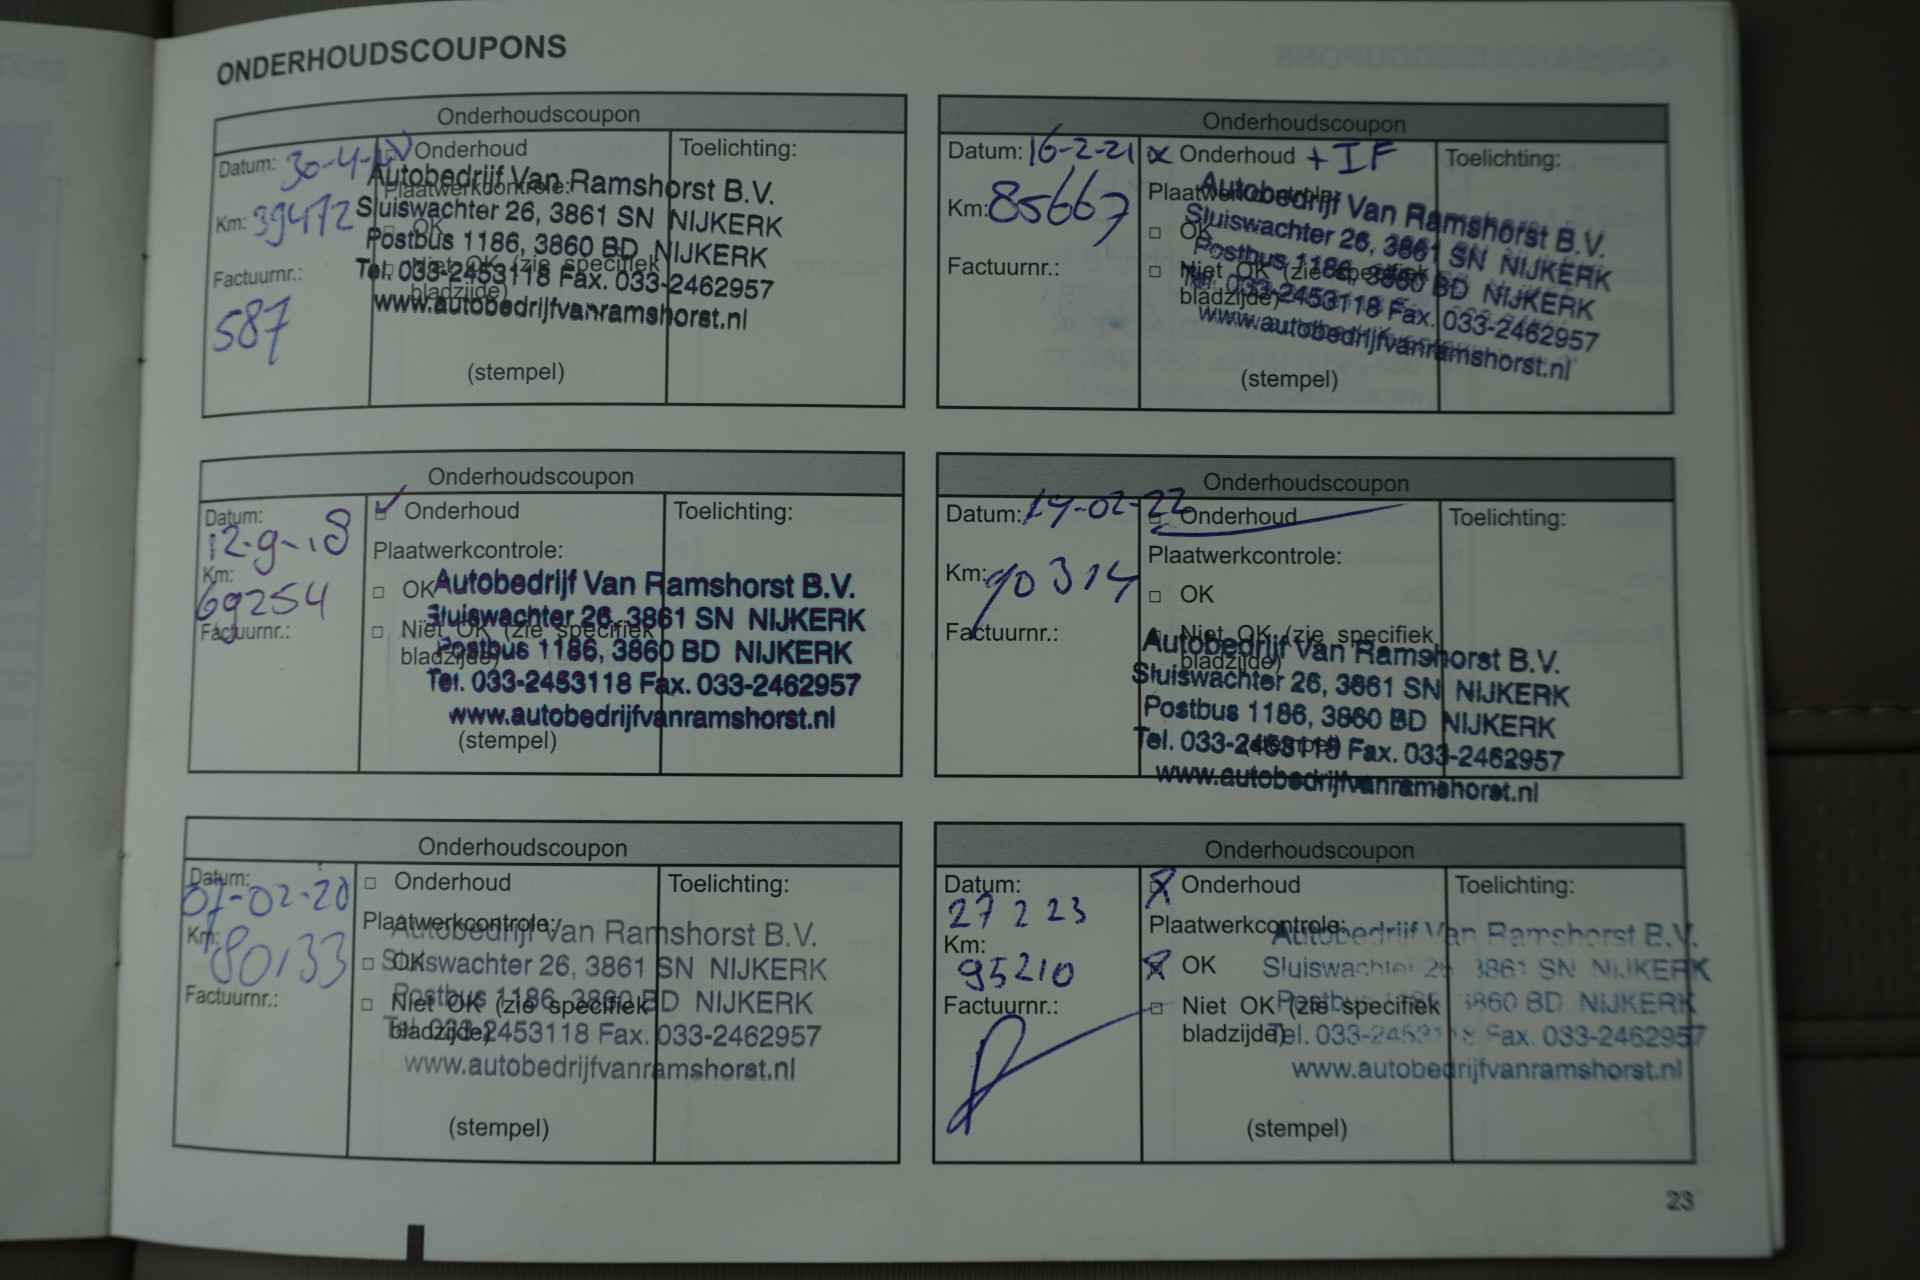 ONDERHOUDSCOUPONS
Onderhoudscoupon
Datum: 30-4-
Onderhoud
Toelichting:
Plaatwerkcontrole:
Km: 39472
OK
Niet OK (zie specifiek
bladzijde)
Factuurnr.:
587
Autobedrijf Van Ramshorst B.V.
Sluiswachter 26, 3861 SN NIJKERK
Postbus 1186, 3860 BD NIJKERK
Tel. 033-2453118 Fax. 033-2462957
www.autobedrijfvanramshorst.nl
(stempel)
Onderhoudscoupon
Datum:
12-9-18
Km:
69254
Factuurnr.:
Onderhoud
Plaatwerkcontrole:
OK
Niet OK (zie specifiek
bladzijde)
Toelichting:
Autobedrijf Van Ramshorst B.V.
Sluiswachter 26, 3861 SN NIJKERK
Postbus 1186, 3860 BD NIJKERK
Tel. 033-2453118 Fax. 033-2462957
www.autobedrijfvanramshorst.nl
(stempel)
Onderhoudscoupon
Datum:
07-02-20
Km:
80133
Factuurnr.:
Onderhoud
Plaatwerkcontrole:
OK
Niet OK (zie specifiek
bladzijde)
Toelichting:
Autobedrijf Van Ramshorst B.V.
Sluiswachter 26, 3861 SN NIJKERK
Postbus 1186, 3860 BD NIJKERK
Tel. 033-2453118 Fax. 033-2462957
www.autobedrijfvanramshorst.nl
(stempel)
Onderhoudscoupon
Datum: 16-2-21
Km: 85667
Factuurnr.:
Onderhoud + IF
Plaatwerkcontrole:
OK
Niet OK (zie specifiek
bladzijde)
Toelichting:
Autobedrijf Van Ramshorst B.V.
Sluiswachter 26, 3861 SN NIJKERK
Postbus 1186, 3860 BD NIJKERK
Tel. 033-2453118 Fax. 033-2462957
www.autobedrijfvanramshorst.nl
(stempel)
Onderhoudscoupon
Datum: 14-02-22
Km: 90314
Factuurnr.:
Onderhoud
Plaatwerkcontrole:
OK
Niet OK (zie specifiek
bladzijde)
Toelichting:
Autobedrijf Van Ramshorst B.V.
Sluiswachter 26, 3861 SN NIJKERK
Postbus 1186, 3860 BD NIJKERK
Tel. 033-2453118 Fax. 033-2462957
www.autobedrijfvanramshorst.nl
(stempel)
Onderhoudscoupon
Datum:
27 2 23
Km:
95210
Factuurnr.:
Onderhoud
Plaatwerkcontrole:
OK
Niet OK (zie specifiek
bladzijde)
Toelichting:
Autobedrijf Van Ramshorst B.V.
Sluiswachter 26 3861 SN NIJKERK
Postbus 1186 3860 BD NIJKERK
Tel. 033-2453118 Fax. 033-2462957
www.autobedrijfvanramshorst.nl
(stempel)
23